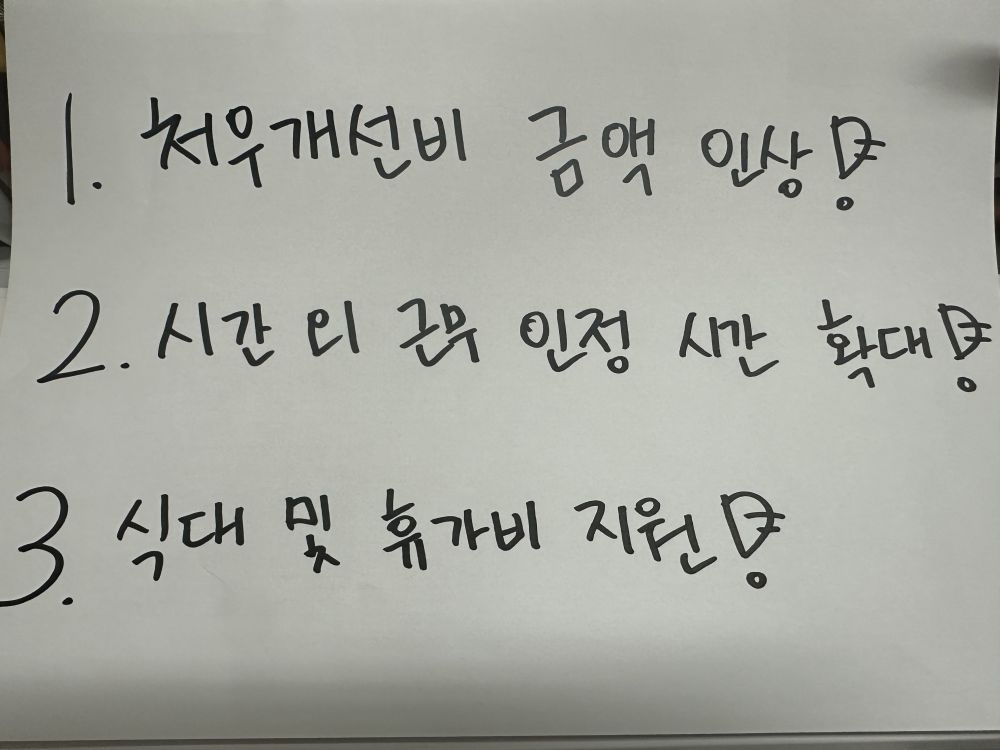 1. 처우개선비 금액 인상!
2. 시간 외 근무 인정 시간 확대!
3. 식대 및 휴가비 지원!